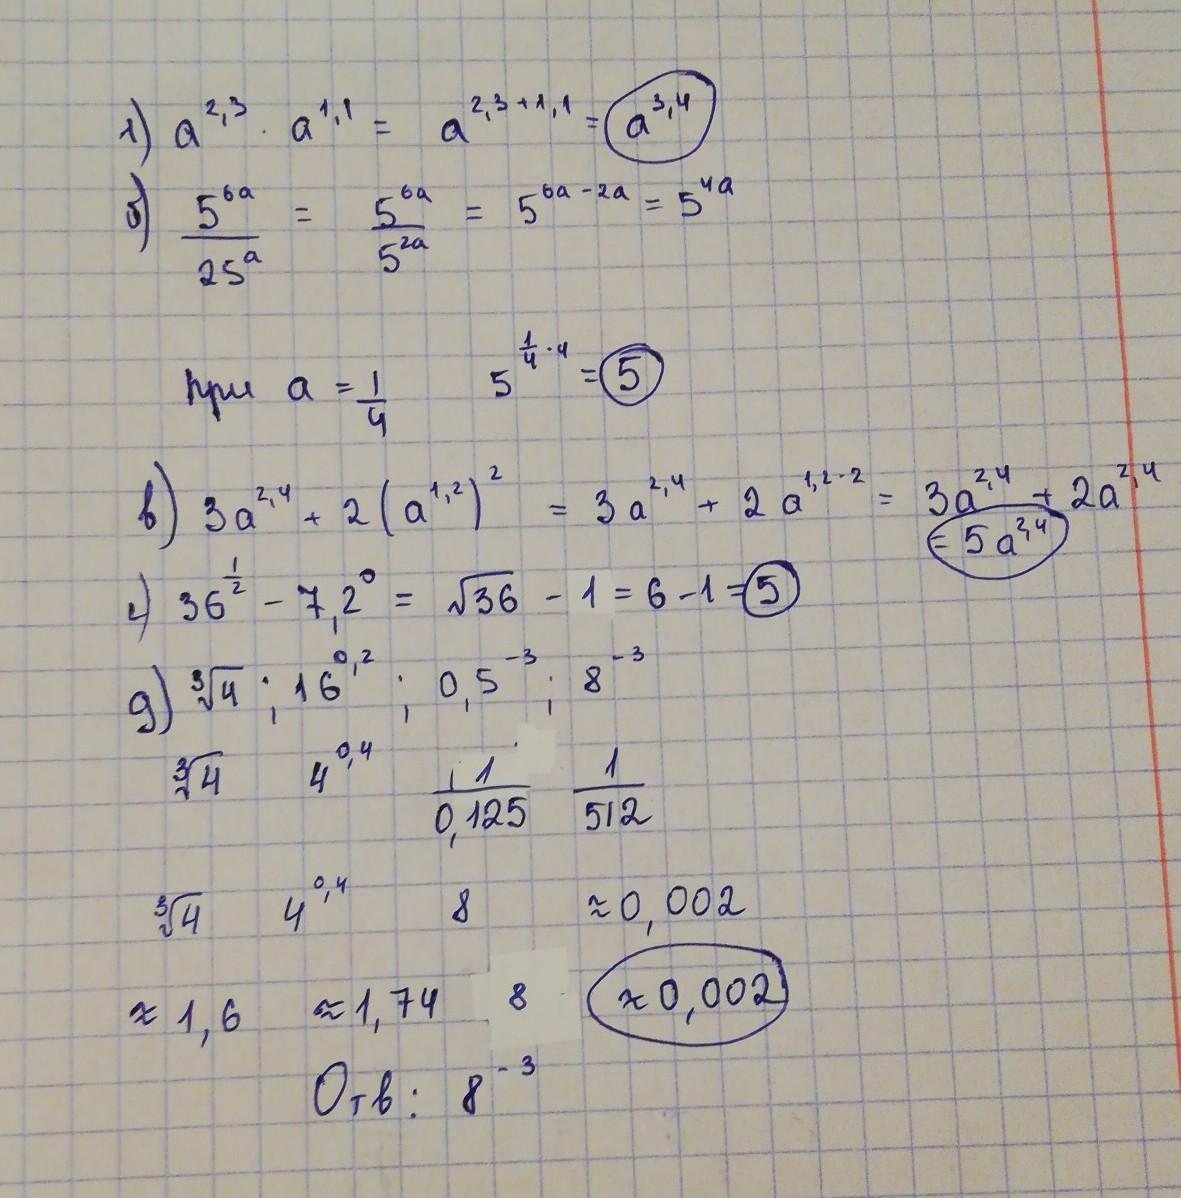 1) a^{2,3} · a^{1,1} = a^{2,3+1,1} = a^{3,4}
б) \frac{5^{6a}}{25^{a}} = \frac{5^{6a}}{5^{2a}} = 5^{6a-2a} = 5^{4a}
при a = \frac{1}{4} 5^{\frac{1}{4}·4} = 5
в) 3a^{2,4} + 2(a^{1,2})^{2} = 3a^{2,4} + 2a^{1,2·2} = 3a^{2,4} + 2a^{2,4}
= 5a^{2,4}
г) 36^{\frac{1}{2}} - 7,2^{0} = √36 - 1 = 6 - 1 = 5
д) ∛4 ; 16^{0,2} ; 0,5^{-3} ; 8^{-3}
∛4 4^{0,4} \frac{1}{0,125} \frac{1}{512}
∛4 4^{0,4} 8 ≈ 0,002
≈ 1,6 ≈ 1,74 8 ≈ 0,002
Отв: 8^{-3}